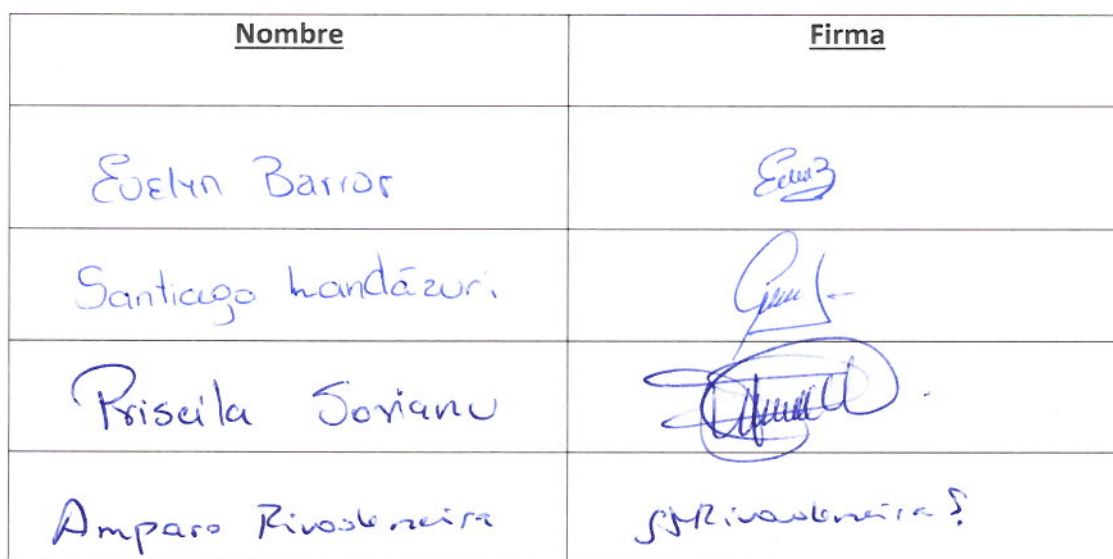 Nombre Firma
Evelyn Barros
Santiago Landázuri
Priscila Soriano
Amparo Rivadeneira Rivadeneira